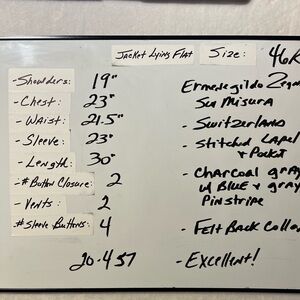 Jacket Lying Flat Size: 46R
- Shoulders: 19"
- Chest: 23"
- Waist: 21.5"
- Sleeve: 23"
- Length: 30"
- # Button Closure: 2
- Vents: 2
# Sleeve Buttons: 4
20-457
Ermenegildo Zegna
Su Misura
- Switzerland
- Stitched Lapel
+ Pocket
- Charcoal gray
w/ Blue + gray
Pinstripe
- Felt Back Collar
- Excellent!